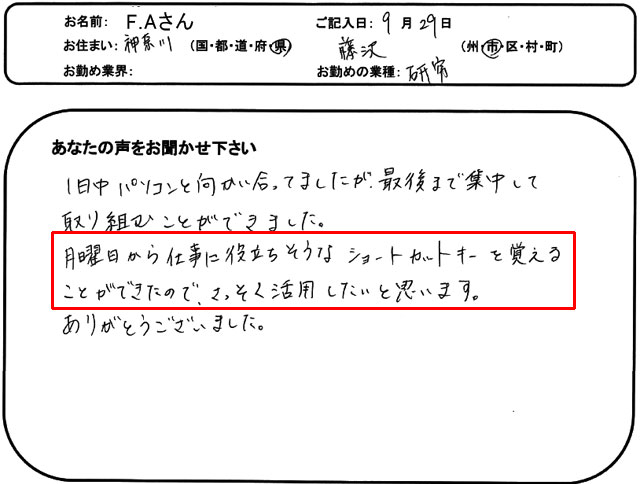 お名前: F.Aさん ご記入日: 9月29日
お住まい: 神奈川 (国・都・道・府・県) 藤沢 (州・市・区・村・町)
お勤め業界: お勤めの業種: 研究
あなたの声をお聞かせ下さい
1日中パソコンと向かい合ってましたが、最後まで集中して
取り組むことができました。
月曜日から仕事に役立ちそうなショートカットキーを覚える
ことができたので、さっそく活用したいと思います。
ありがとうございました。